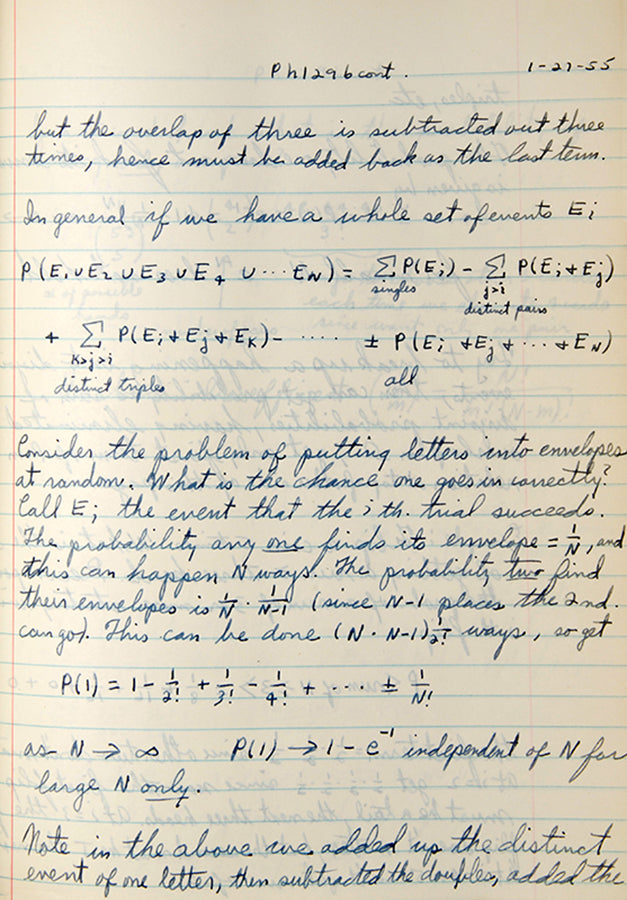 Ph129b cont. 1-27-55
but the overlap of three is subtracted out three
times, hence must be added back as the last term.
In general if we have a whole set of events Ei
P(E1 ∪ E2 ∪ E3 ∪ E4 ∪ ··· EN) = ∑ P(Ei) - ∑ P(Ei + Ej)
singles j>i
distinct pairs
+ ∑ P(Ei + Ej + EK) - ····· ± P(Ei + Ej + ··· + EN)
K>j>i all
distinct triples
Consider the problem of putting letters into envelopes
at random. What is the chance one goes in correctly?
Call Ei the event that the i th. trial succeeds.
The probability any one finds its envelope = 1/N, and
this can happen N ways. The probability two find
their envelopes is 1/N · 1/N-1 (since N-1 places the 2nd.
can go). This can be done (N · N-1) 1/2! ways, so get
P(1) = 1 - 1/2! + 1/3! - 1/4! + ··· ± 1/N!
as N → ∞ P(1) → 1 - e^-1 independent of N for
large N only.
Note in the above we added up the distinct
event of one letter, then subtracted the doubles, added the